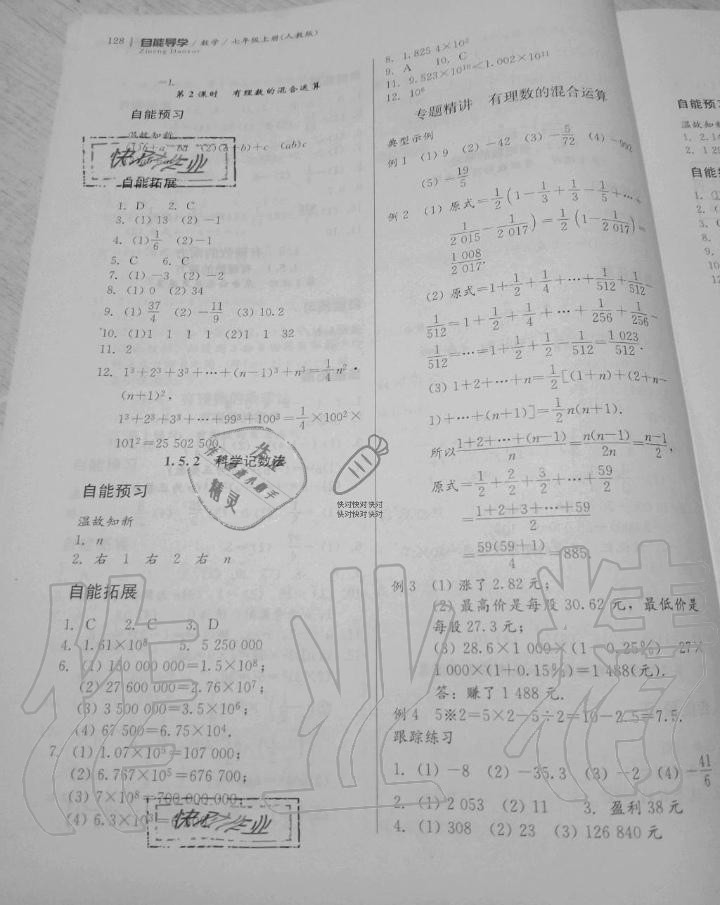 128 自能导学/数学/七年级上册(人教版)
Zineng Daoxue
第2课时 有理数的混合运算
自能预习
温故知新
快对作业
自能拓展
1. D 2. C
3. (1)13 (2)-1
4. (1)1/6 (2)-1
5. C 6. C
7. (1)-3 (2)-2
8. (1)0 (2)34
9. (1)37/4 (2)-11/9 (3)10.2
10. (1)1 1 1 1 (2)1 1 32
11. 2
12. 1³+2³+3³+…+(n-1)³+n³=1/4n²·
(n+1)²,
1³+2³+3³+…+99³+100³=1/4×100²×
101²=25 502 500.
1.5.2 科学记数法
自能预习
温故知新
1. n
2. 右 1 右 2 右 n
自能拓展
1. C 2. C 3. D
4. 1.61×10⁸ 5. 5 250 000
6. (1) 150 000 000=1.5×10⁸;
(2) 27 600 000=2.76×10⁷;
(3) 3 500 000=3.5×10⁶;
(4) 67 500=6.75×10⁴.
7. (1) 1.07×10⁵=107 000;
(2) 6.767×10⁵=676 700;
(3) 7×10⁸=700 000 000;
(4) 6.3×10
快对作业
8. 1.825 4×10⁵
9. A 10. C
11. 9.523×10¹⁰<1.002×10¹¹
12. 10⁶
专题精讲 有理数的混合运算
典型示例
例1 (1) 9 (2) -42 (3) -5/72 (4)
(5) -19/5
例2 (1) 原式=1/2(1-1/3+1/3-1/5+…+
1/2 015-1/2 017)=1/2(1-1/2 017)=
1 008/2 017.
(2) 原式=1+1/2+1/4+…+1/512+1/512-
1/512=1+1/2+1/4+…+1/256+1/256-
1/512=…=1+1/2+1/2-1/512=1 023/512.
(3) 1+2+…+n=1/2[(1+n)+(2+n-
1)+…+(n+1)]=1/2n(n+1).
所以1+2+…+(n-1)/n=n(n-1)/2n=n-1/2,
原式=1/2+2/2+3/2+…+59/2
=1+2+3+…+59/2
=59(59+1)/4=885.
例3 (1) 涨了2.82元;
(2) 最高价是每股30.62元,最低价是
每股27.3元;
(3) 28.6×1 000×(1-0.25%)-27×
1 000×(1+0.15%)=1 488(元).
答:赚了1 488元.
例4 5※2=5×2-5÷2=10-2.5=7.5.
跟踪练习
1. (1) -8 (2) -35.3 (3) -2 (4) -41/6
2. (1) 2 053 (2) 11 3. 盈利38元
4. (1) 308 (2) 23 (3) 126 840元
快对快对快对
快对快对快对
作业精灵
自能预习
温故知新